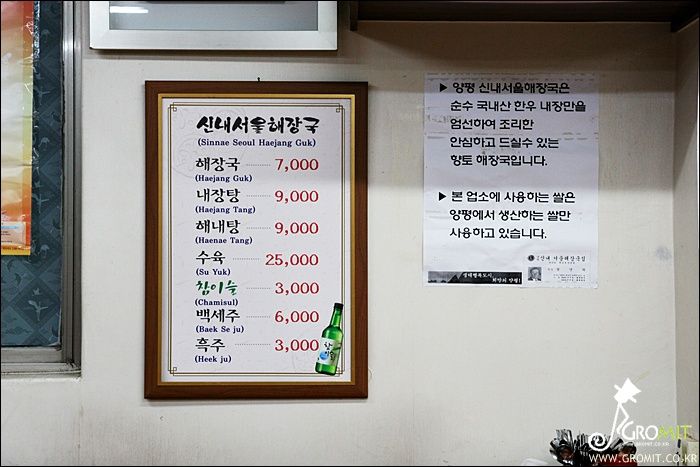 신내서울해장국
(Sinnae Seoul Haejang Guk)
해장국 7,000
(Haejang Guk)
내장탕 9,000
(Haejang Tang)
해내탕 9,000
(Haenae Tang)
수육 25,000
(Su Yuk)
참이슬 3,000
(Chamisul)
백세주 6,000
(Baek Se ju)
흑주 3,000
(Heek ju)
▶ 양평 신내서울해장국은
순수 국내산 한우 내장만을
엄선하여 조리한
안심하고 드실수 있는
향토 해장국입니다.
▶ 본 업소에 사용하는 쌀은
양평에서 생산하는 쌀만
사용하고 있습니다.
신내 서울해장국집
생태행복도시,
희망의 양평!
GROMIT
WWW.GROMIT.CO.KR
WWW.GROMIT.CO.KR